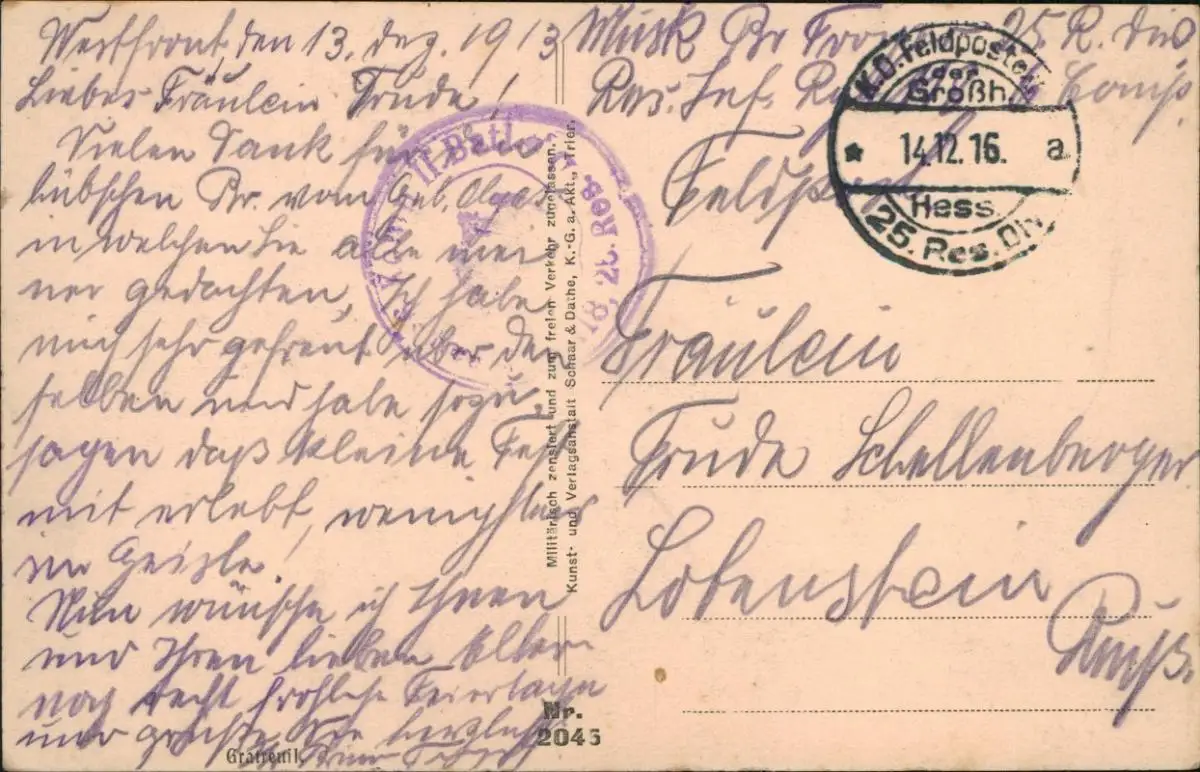 Westfront, den 13. Dez. 1913
Liebes Fräulein Trude!
Vielen Dank für
hübschen
in welchen Sie alle mei
ner gedachten, Ich habe
mich sehr gefreut über den
selben und habe sozu
sagen daß kleine Fest
mit erlebt, wenigstens
im Geiste!
Nun wünsche ich Ihnen
und Ihren lieben Eltern
noch recht fröhliche Feiertage
und grüße Sie herzlichst
Grätreuil.
Musk 25. R. Div
Res. Inf. Comp.
Feldpost
K.D. Feldpostexp.
der
Großh.
14.12.16. a
Hess.
25. Res. Div.
II. Batl.
Militärisch zensiert und zum freien Verkehr zugelassen.
Kunst- und Verlagsanstalt Schaar & Dathe, K.-G. a. Akt., Trier.
Fräulein
Trude Schellenberger
Lobenstein
Reuß.
Nr.
2045